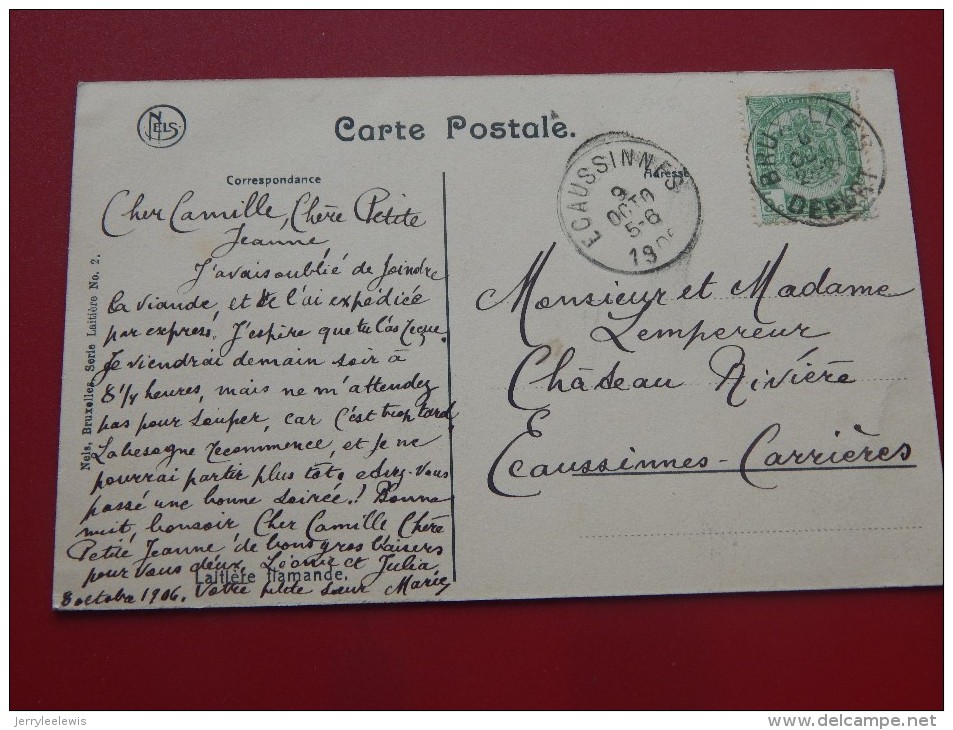 NELS
Carte Postale.
Correspondance
Adresse
Nels, Bruxelles, Serie Laitière No. 2.
Cher Camille, Chère Petite
Jeanne
J'avais oublié de joindre
la viande, et je l'ai expédiée
par express, J'espère que tu l'as reçue.
Je viendrai demain soir à
8 1/4 heures, mais ne m'attendez
pas pour souper, car c'est trop tard,
La besogne recommence, et je ne
pourrai partir plus tôt.
passé une bonne soirée! Bonne
nuit, bonsoir Cher Camille Chère
Petite Jeanne de bons gros baisers
pour vous deux, Léonie et Julia
Laitière flamande.
8 octobre 1906. Votre petite sœur Marie
ECAUSSINNES
9
OCTO
5-6
190
DEPART
Monsieur et Madame
Lempereur
Château Rivière
Ecaussinnes-Carrières
jerryleelewis
www.delcampe.net